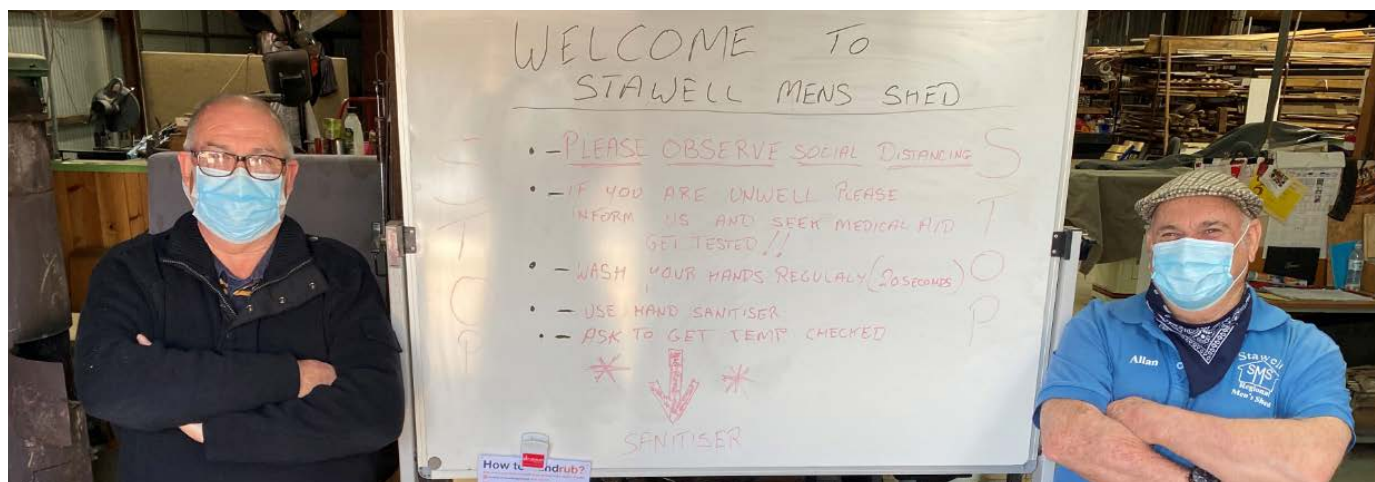 WELCOME TO
STAWELL MENS SHED
• - PLEASE OBSERVE SOCIAL DISTANCING
• - IF YOU ARE UNWELL PLEASE
INFORM US AND SEEK MEDICAL AID
GET TESTED!!
• - WASH YOUR HANDS REGULALY (20 SECONDS)
• - USE HAND SANITISER
• - ASK TO GET TEMP CHECKED
SANITISER
S
T
O
P
S
T
O
P
How to ndrub?
Allan
Stawell
SMS
Regional
Men's Shed